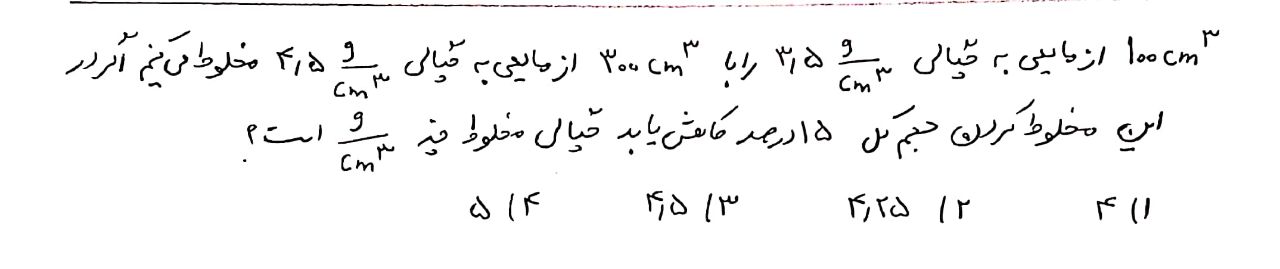 ۱۰۰ cm³ از مایعی به چگالی ۳٫۵ g/cm³ را با ۳۰۰ cm³ از مایعی به چگالی ۴٫۵ g/cm³ مخلوط می‌کنیم اگر در
این مخلوط کردن حجم کل ۱۵ درصد کاهش یابد چگالی مخلوط چند g/cm³ است؟
۱) ۴ ۲) ۴٫۲۵ ۳) ۴٫۵ ۴) ۵